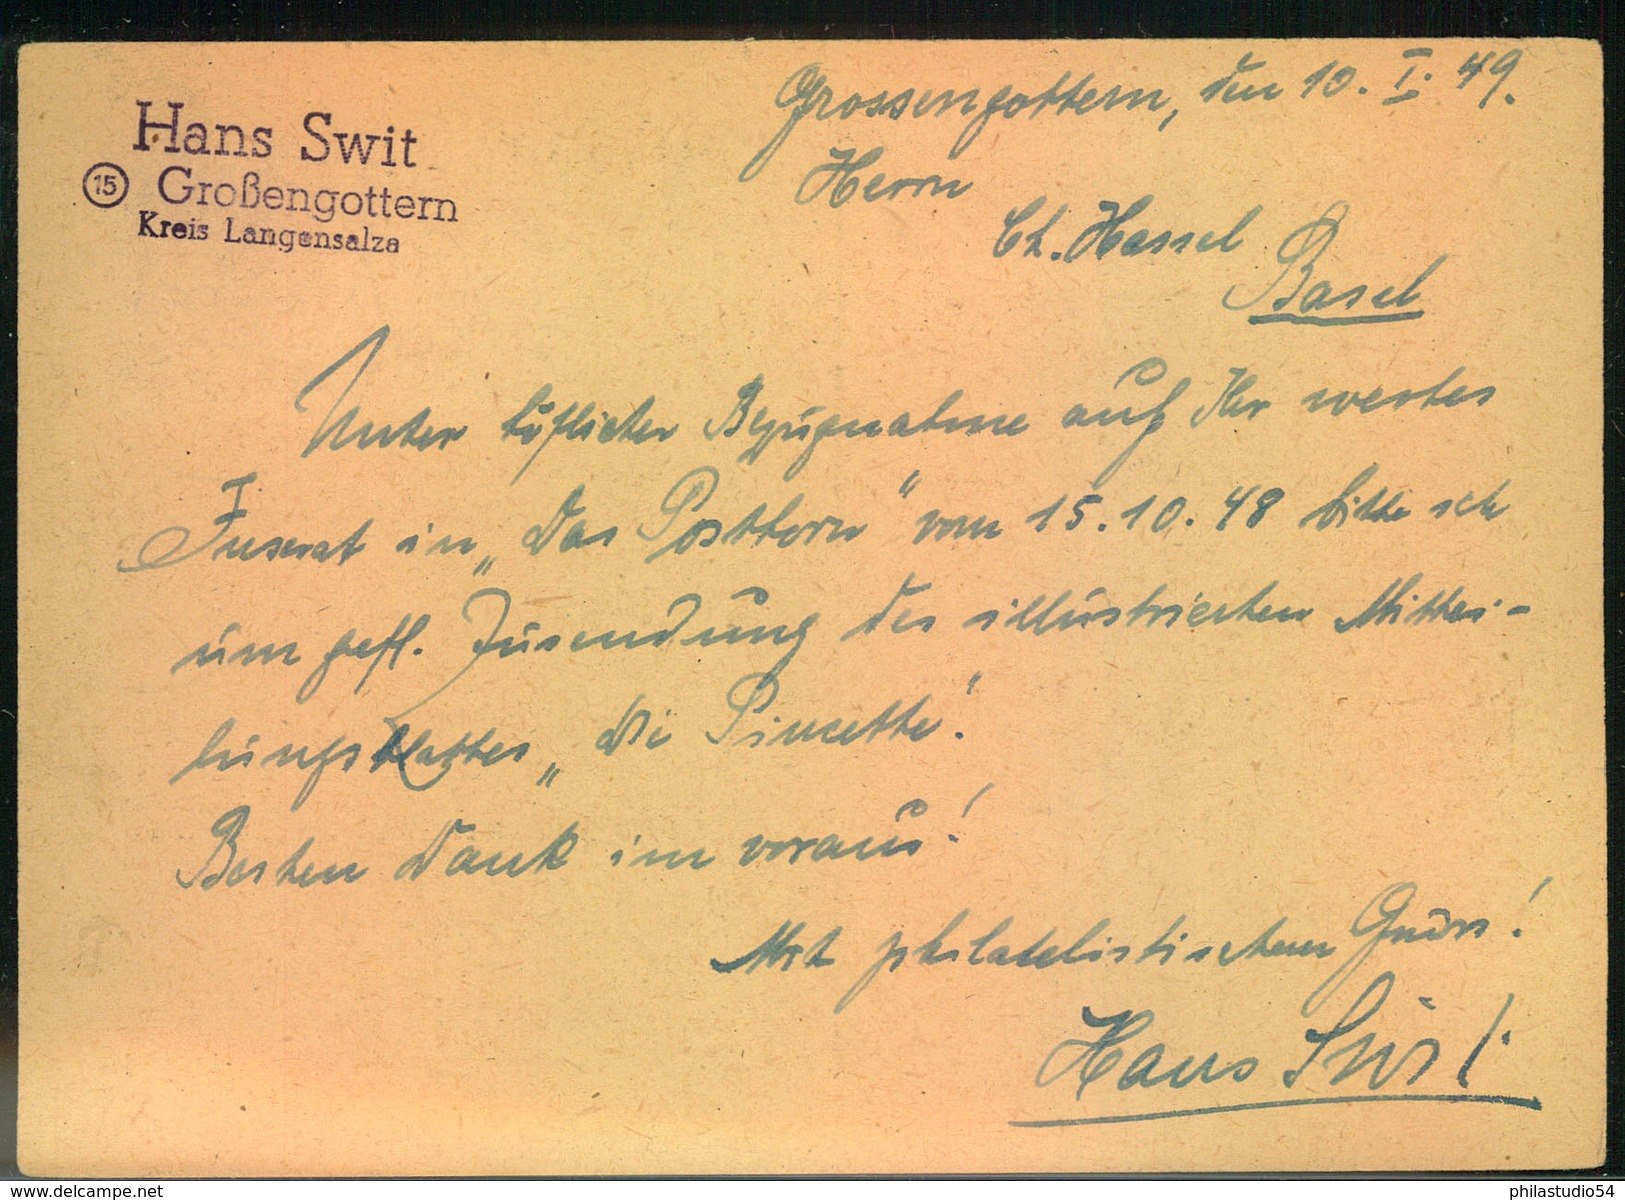 Hans Swit
15 Großengottern
Kreis Langensalza
Grossengottern, den 10. I. 49.
Herrn
Ch. Hassel
Basel
Unter höflicher Bezugnahme auf Ihr wertes
Inserat in „Das Posthorn“ vom 15.10.48 bitte ich
um gefl. Zusendung des illustrierten Mittei-
lungsblattes „Die Pincette“.
Besten Dank im voraus!
Mit philatelistischem Gruss!
Hans Swit
delcampe.net
philastudio54